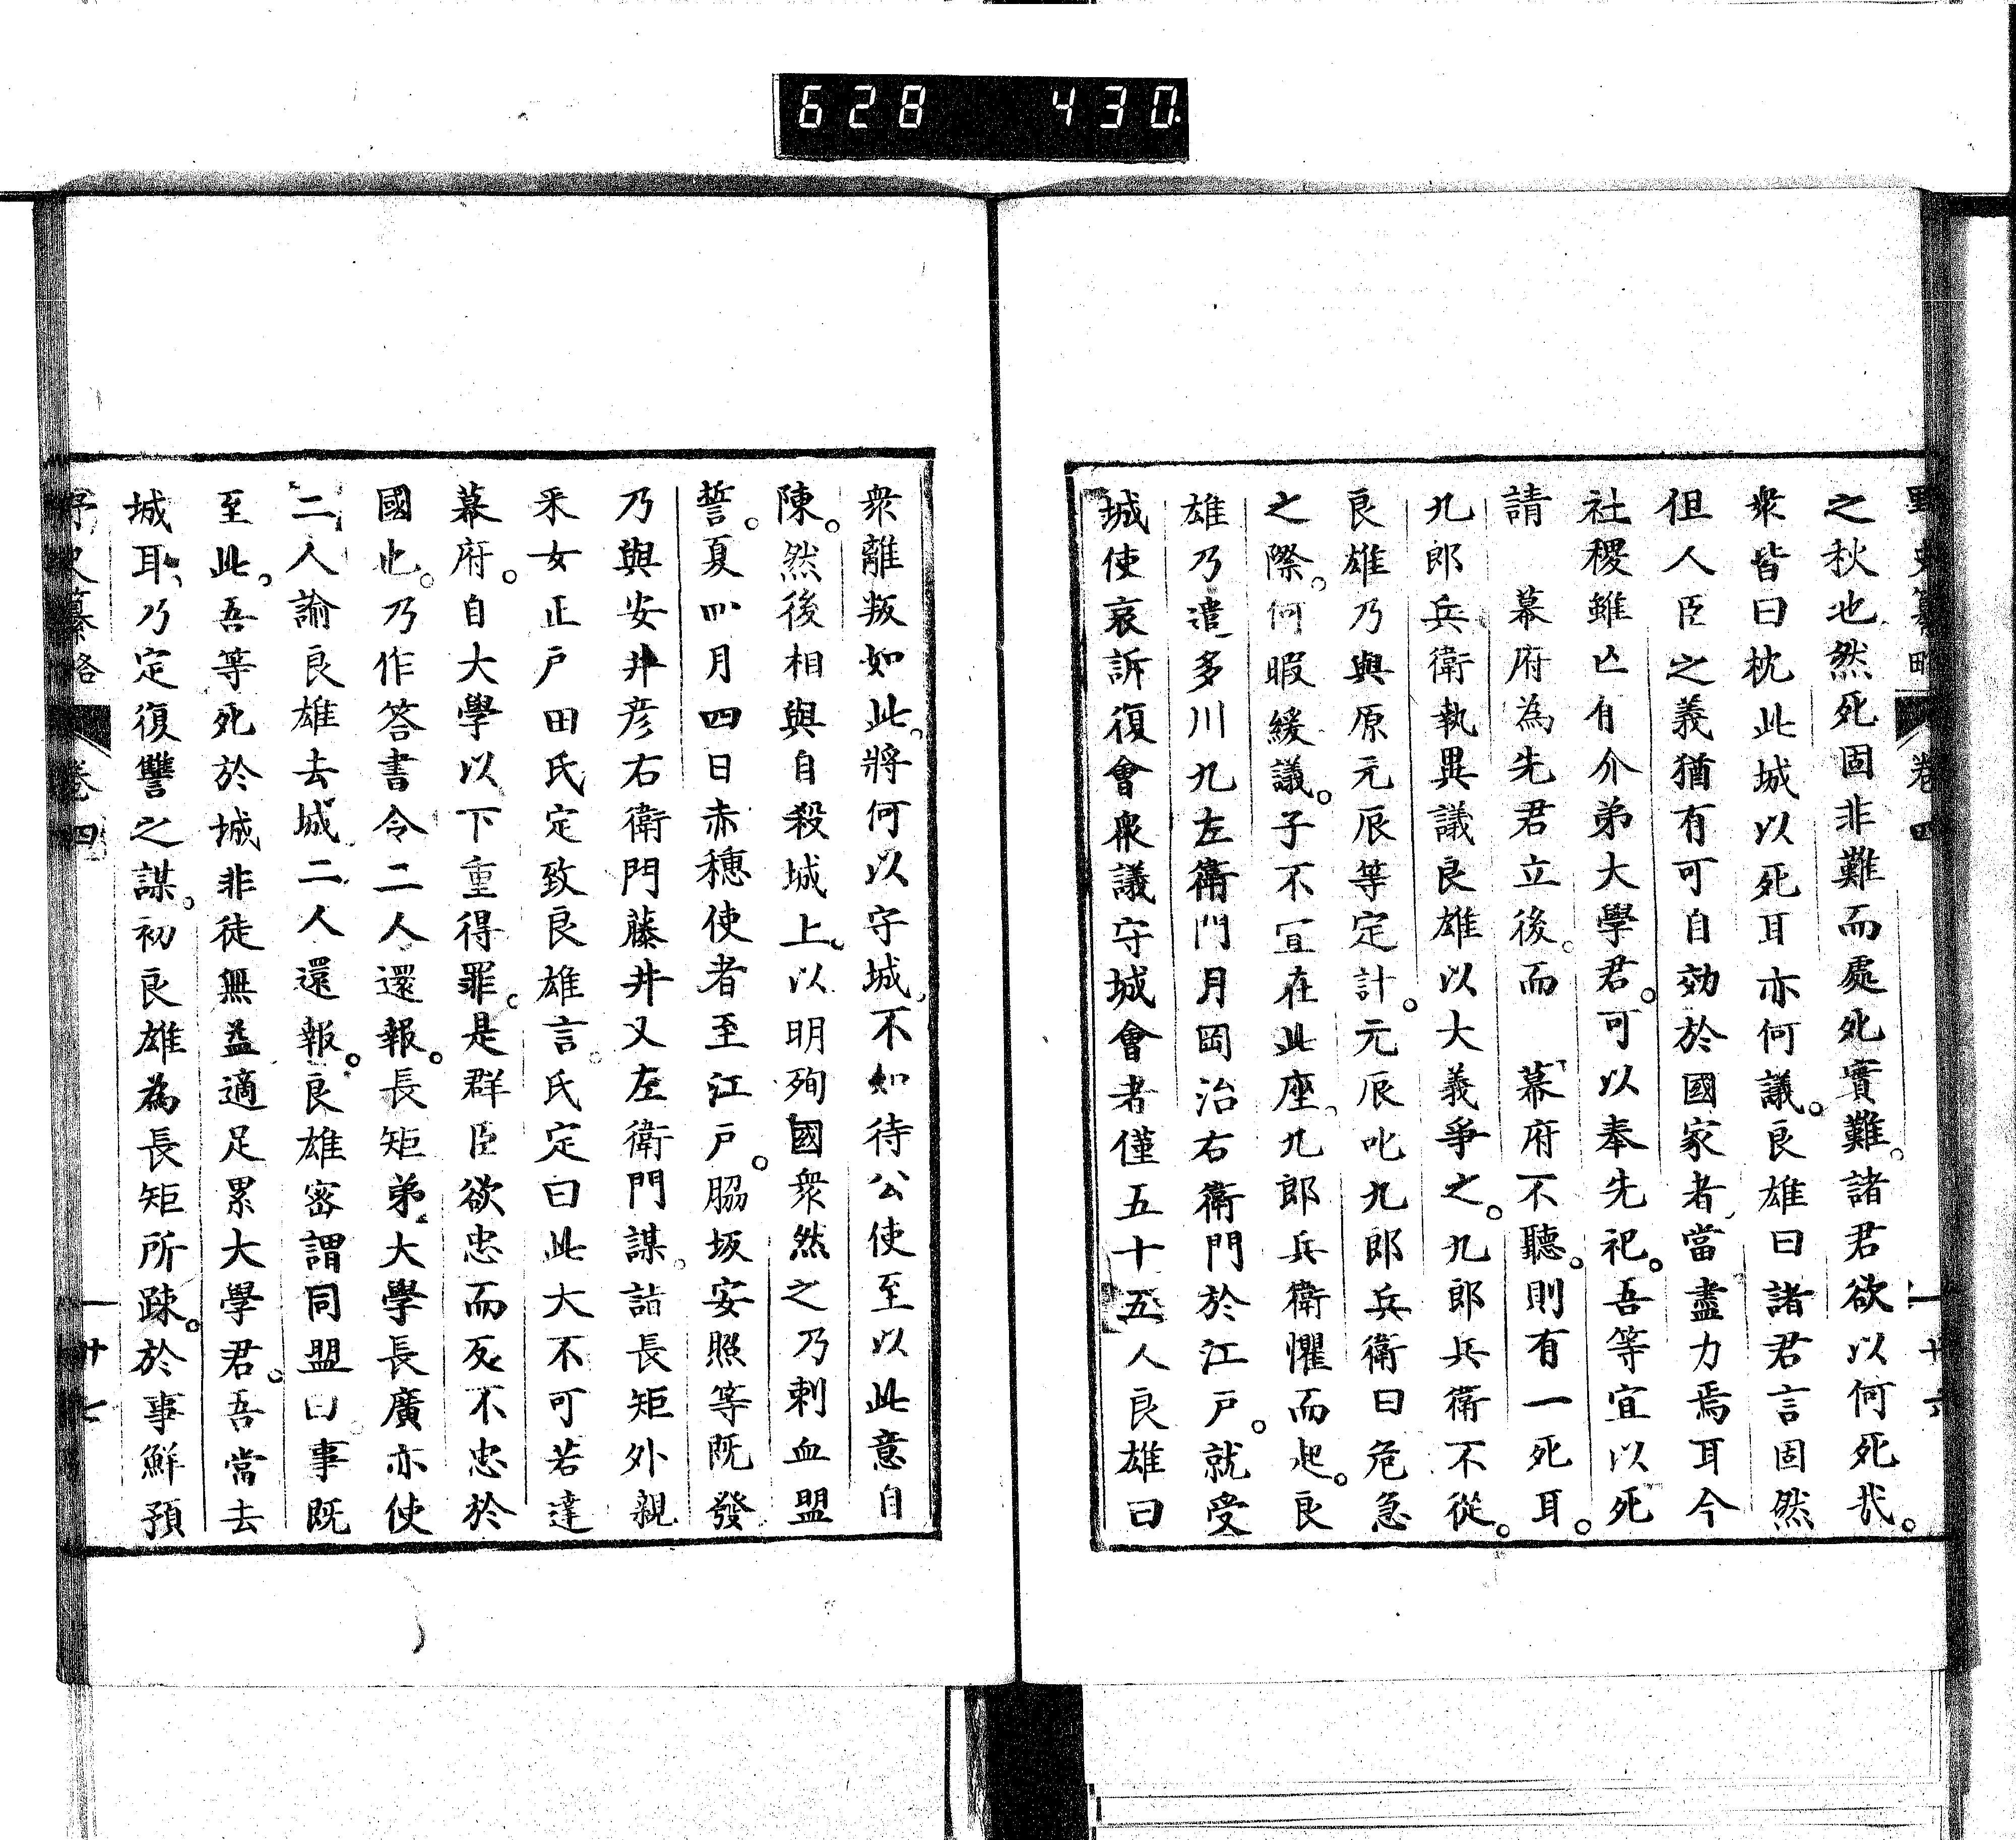 628 430
野史纂略 卷四 廿六
之秋也然死固非難而處死實難。諸君欲以何死哉。
衆皆曰枕此城以死耳亦何議。良雄曰諸君言固然
但人臣之義猶有可自効於國家者、當盡力焉耳今
社稷雖亡有介弟大學君。可以奉先祀。吾等宜以死
請　幕府為先君立後。而　幕府不聽。則有一死耳。
九郎兵衛執異議良雄以大義爭之。九郎兵衛不從。
良雄乃與原元辰等定計。元辰叱九郎兵衛曰危急
之際。何暇緩議。子不宜在此座。九郎兵衛懼而起。良
雄乃遣多川九左衛門月岡治右衛門於江戸。就受
城使哀訴復會衆議守城會者僅五十五人良雄曰
衆離叛如此、將何以守城、不如待公使至以此意自
陳。然後相與自殺城上。以明殉國衆然之乃刺血盟
誓。夏四月四日赤穗使者至江戸。脇坂安照等既發
乃與安井彦右衛門藤井又左衛門謀。詣長矩外親
釆女正戸田氏定致良雄言。氏定曰此大不可若達
幕府。自大學以下重得罪。是群臣欲忠而死不忠於
國也。乃作答書令二人還報。長矩弟大學長廣亦使
二人諭良雄去城、二人還報。良雄密謂同盟曰。事既
至此。吾等死於城非徒無益適足累大學君。吾當去
城耳、乃定復讐之謀。初良雄為長矩所疎。於事鮮預
野史纂略 卷四 廿七